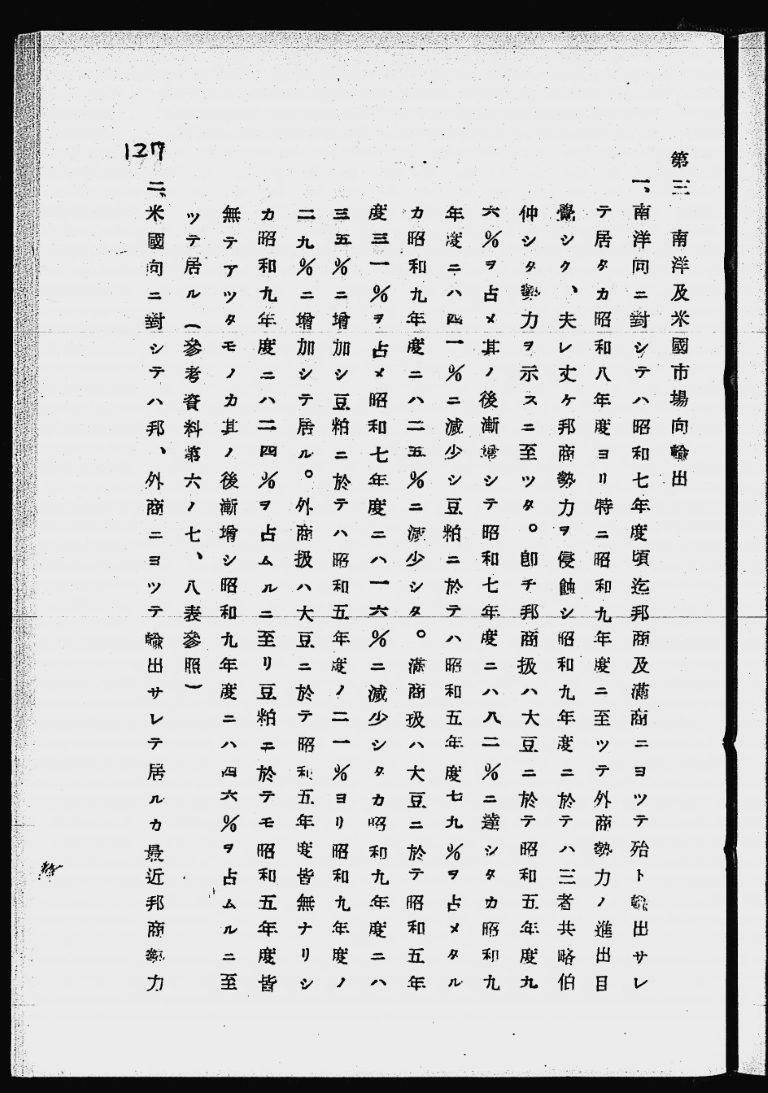 第三　南洋及米國市場向輸出
一、南洋向ニ對シテハ昭和七年度頃迄邦商及滿商ニヨツテ殆ト輸出サレ
テ居タカ昭和八年度ヨリ特ニ昭和九年度ニ至ツテ外商勢力ノ進出目
覺シク、夫レ丈ケ邦商勢力ヲ侵蝕シ昭和九年度ニ於テハ三者共略伯
仲シタ勢力ヲ示スニ至ツタ。卽チ邦商扱ハ大豆ニ於テ昭和五年度九
六％ヲ占メ其ノ後漸增シテ昭和七年度ニハ八二％ニ達シタカ昭和九
年度ニハ四一％ニ減少シ豆粕ニ於テハ昭和五年度七九％ヲ占メタル
カ昭和九年度ニハ二五％ニ減少シタ。滿商扱ハ大豆ニ於テ昭和五年
度三一％ヲ占メ昭和七年度ニハ一六％ニ減少シタカ昭和九年度ニハ
三五％ニ增加シ豆粕ニ於テハ昭和五年度ノ二一％ヨリ昭和九年度ノ
二九％ニ增加シテ居ル。外商扱ハ大豆ニ於テ昭和五年度皆無ナリシ
カ昭和九年度ニハ二四％ヲ占ムルニ至リ豆粕ニ於テモ昭和五年度皆
無テアツタモノカ其ノ後漸增シ昭和九年度ニハ四六％ヲ占ムルニ至
ツテ居ル（參考資料第六ノ七、八表參照）
二、米國向ニ對シテハ邦、外商ニヨツテ輸出サレテ居ルカ最近邦商勢力
127